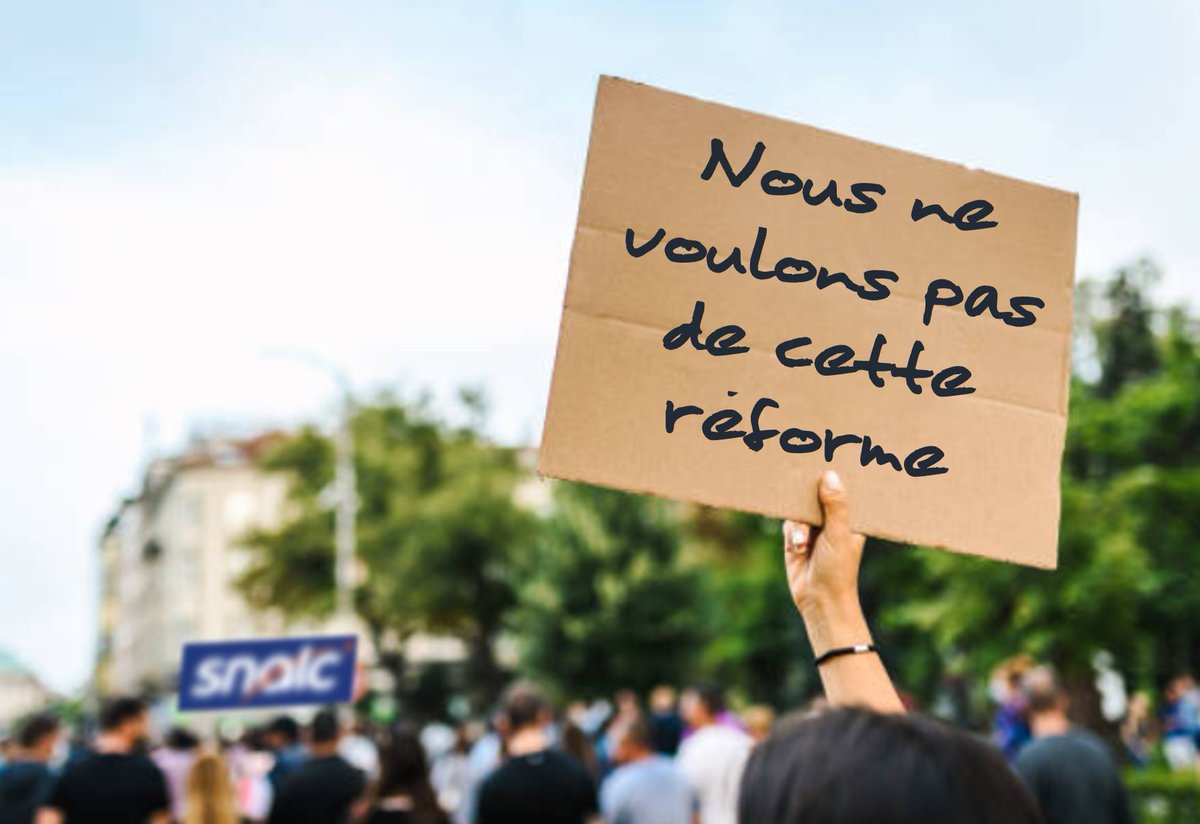 Nous ne
voulons pas
de cette
réforme
snalc